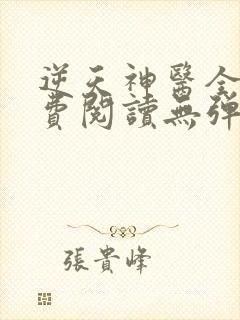 逆天神醫全
費閱讀無彈
張貴峰